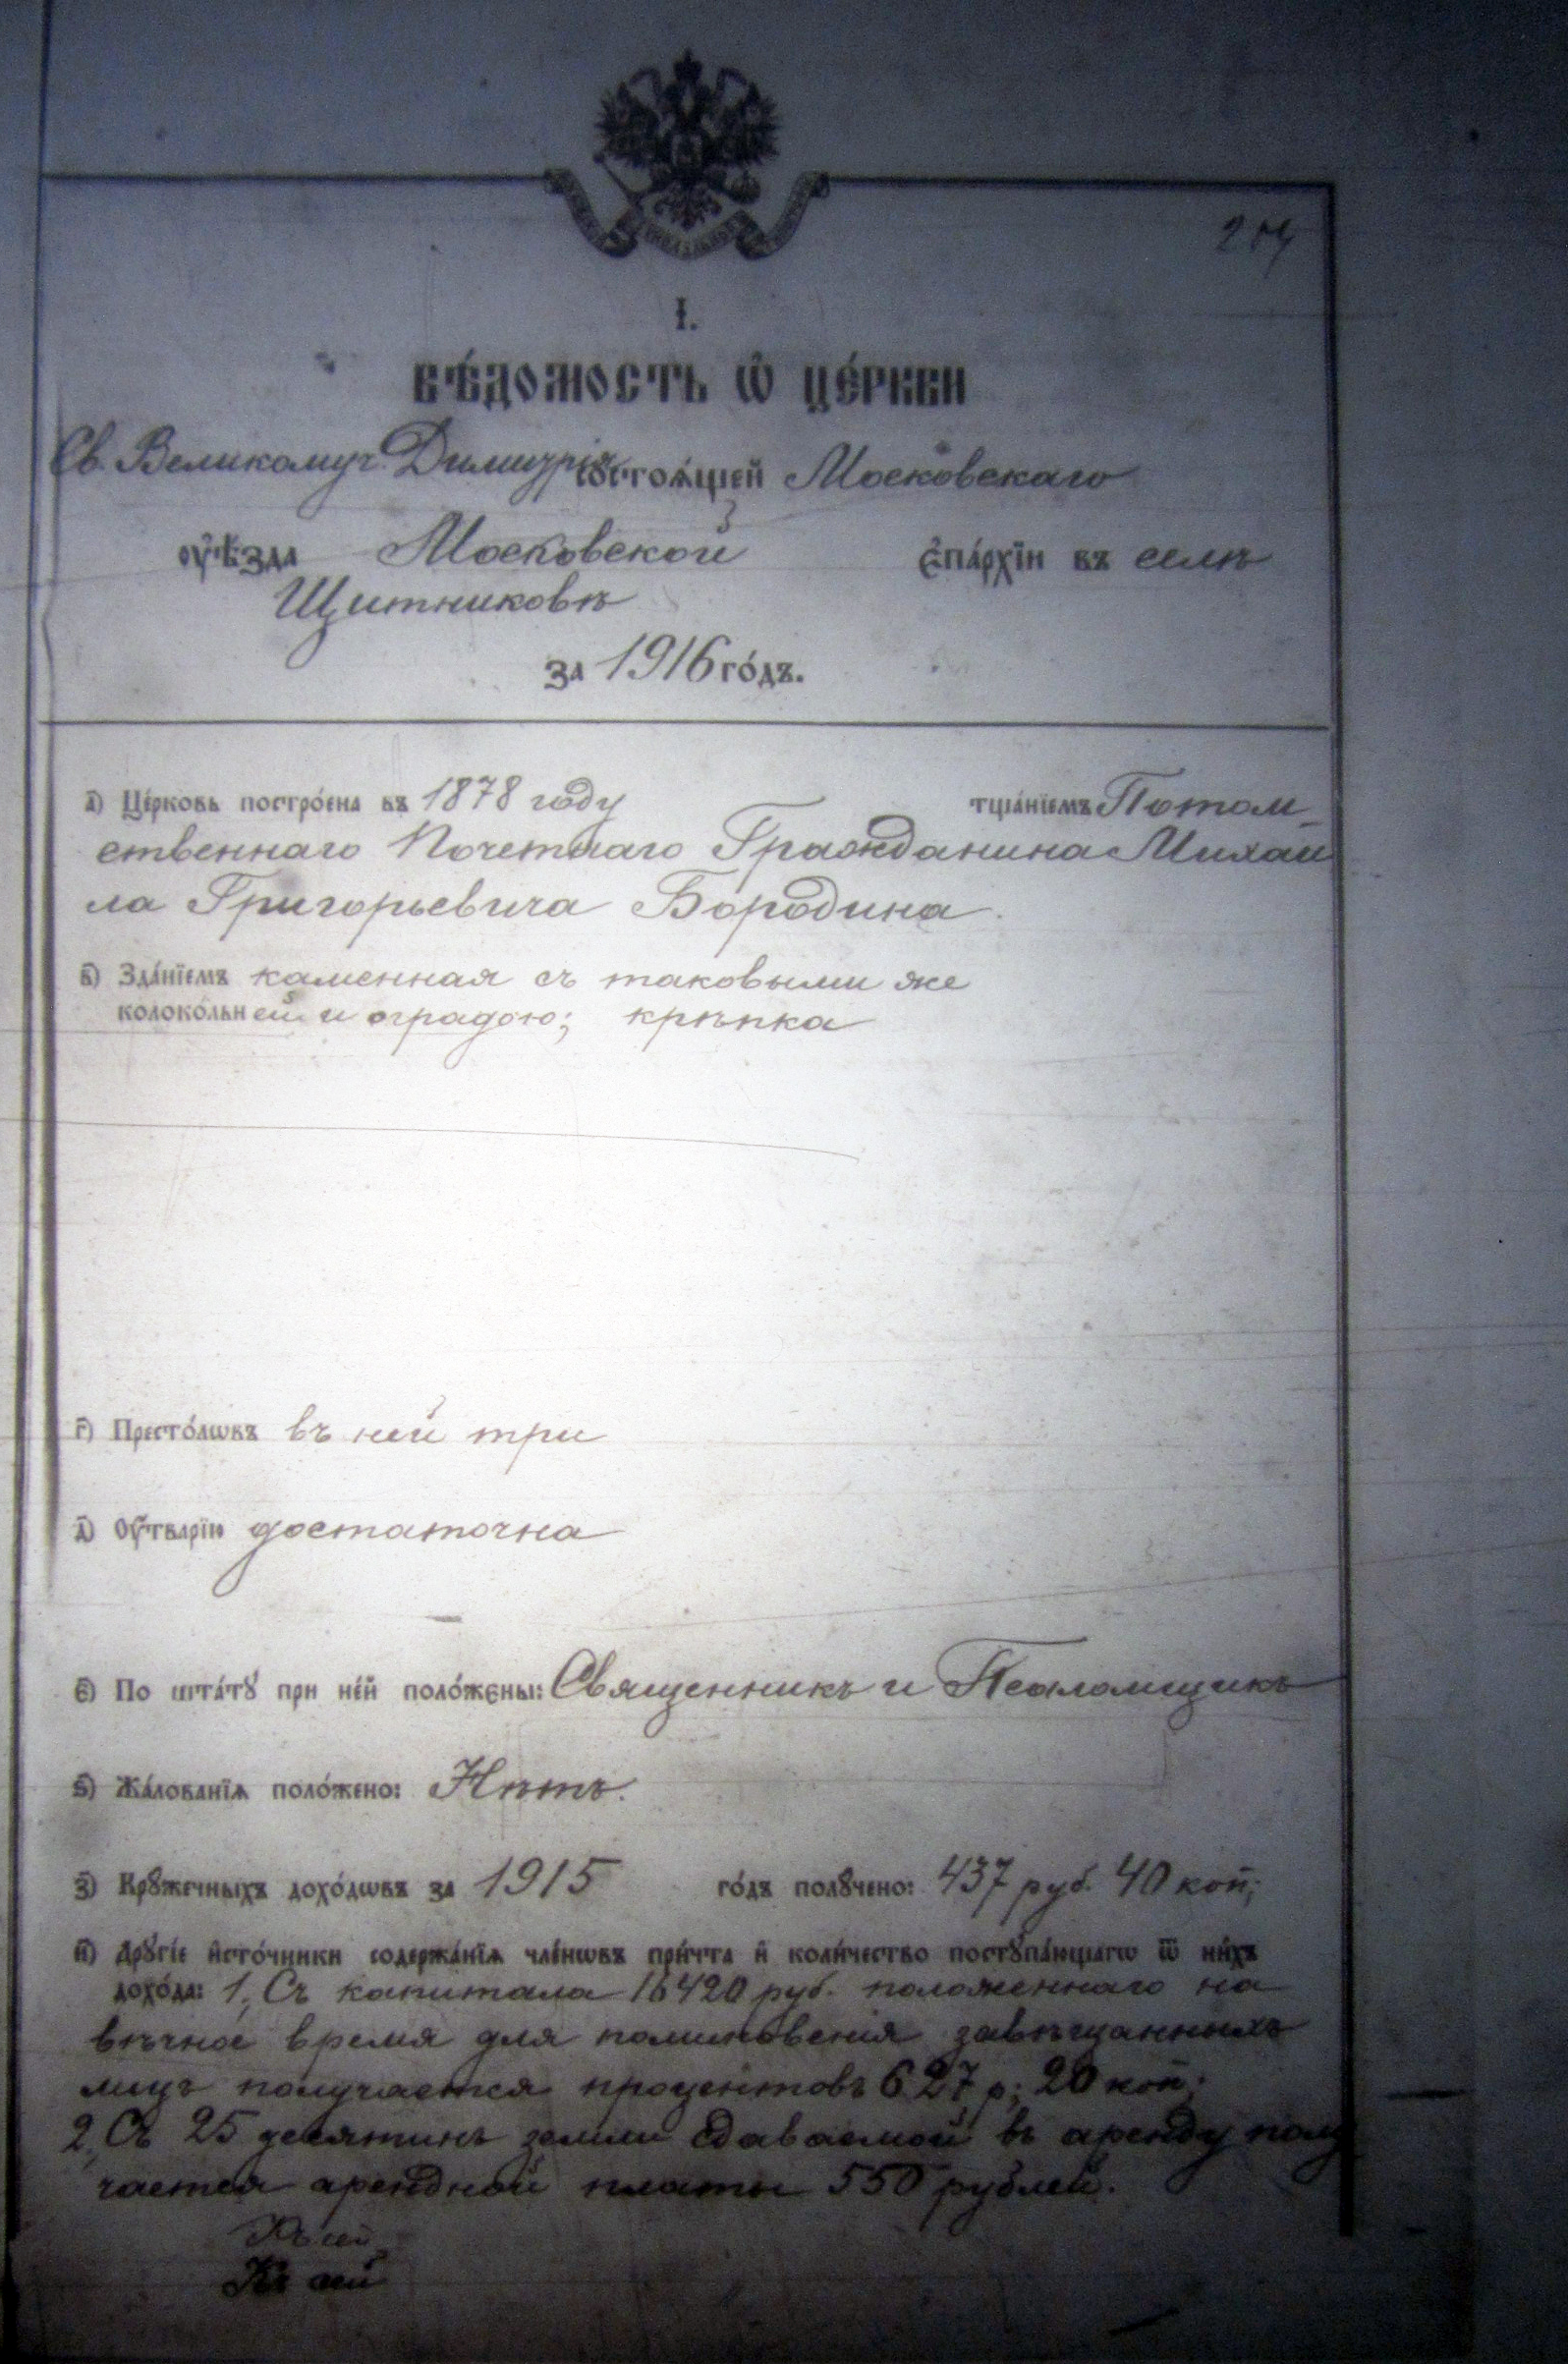 І.
ВѢ́ДОМОСТЬ Ѡ҆ ЦЕ́РКВИ
Св. Великомуч. Димитрія состоѧ́щей Московскаго
ᲂу҆ѣ́зда Московской є҆па́рхїи въ селѣ
Щитниковѣ
за 1916 го́дъ.
а҃) Це́рковь постро́ена въ 1878 году тща́нїемъ Потом-
ственнаго Почетнаго Гражданина Михаи
ла Григорьевича Бородина.
в҃) Зда́нїемъ каменная съ таковыми же
колокольней и оградою; крѣпка
г҃) Престо́лѡвъ въ ней три
д҃) Оу҆́тварїю достаточна
є҃) По шта́тꙋ при не́й поло́жены: Священникъ и Псаломщикъ
ѕ҃) Жа́лованїѧ поло́жено: Нѣтъ.
з҃) Крꙋжечныхъ дохо́дѡвъ за 1915 го́дъ полꙋчено: 437 руб. 40 коп;
и҃) Дрꙋгі́е и҆сто́чники содержа́нїѧ чле́нѡвъ при́чта и҆ коли́чество постꙋпа́ющагѡ ѿ ни́хъ
дохо́да: 1, Съ капитала 16420 руб. положеннаго на
вѣчное время для поминовенія завѣщанныхъ
лицъ получается процентовъ 627 р; 20 коп;
2, Съ 25 десятинъ земли сдаваемой въ аренду полу
чается арендной платы 550 рублей.
Къ сей
Къ сей